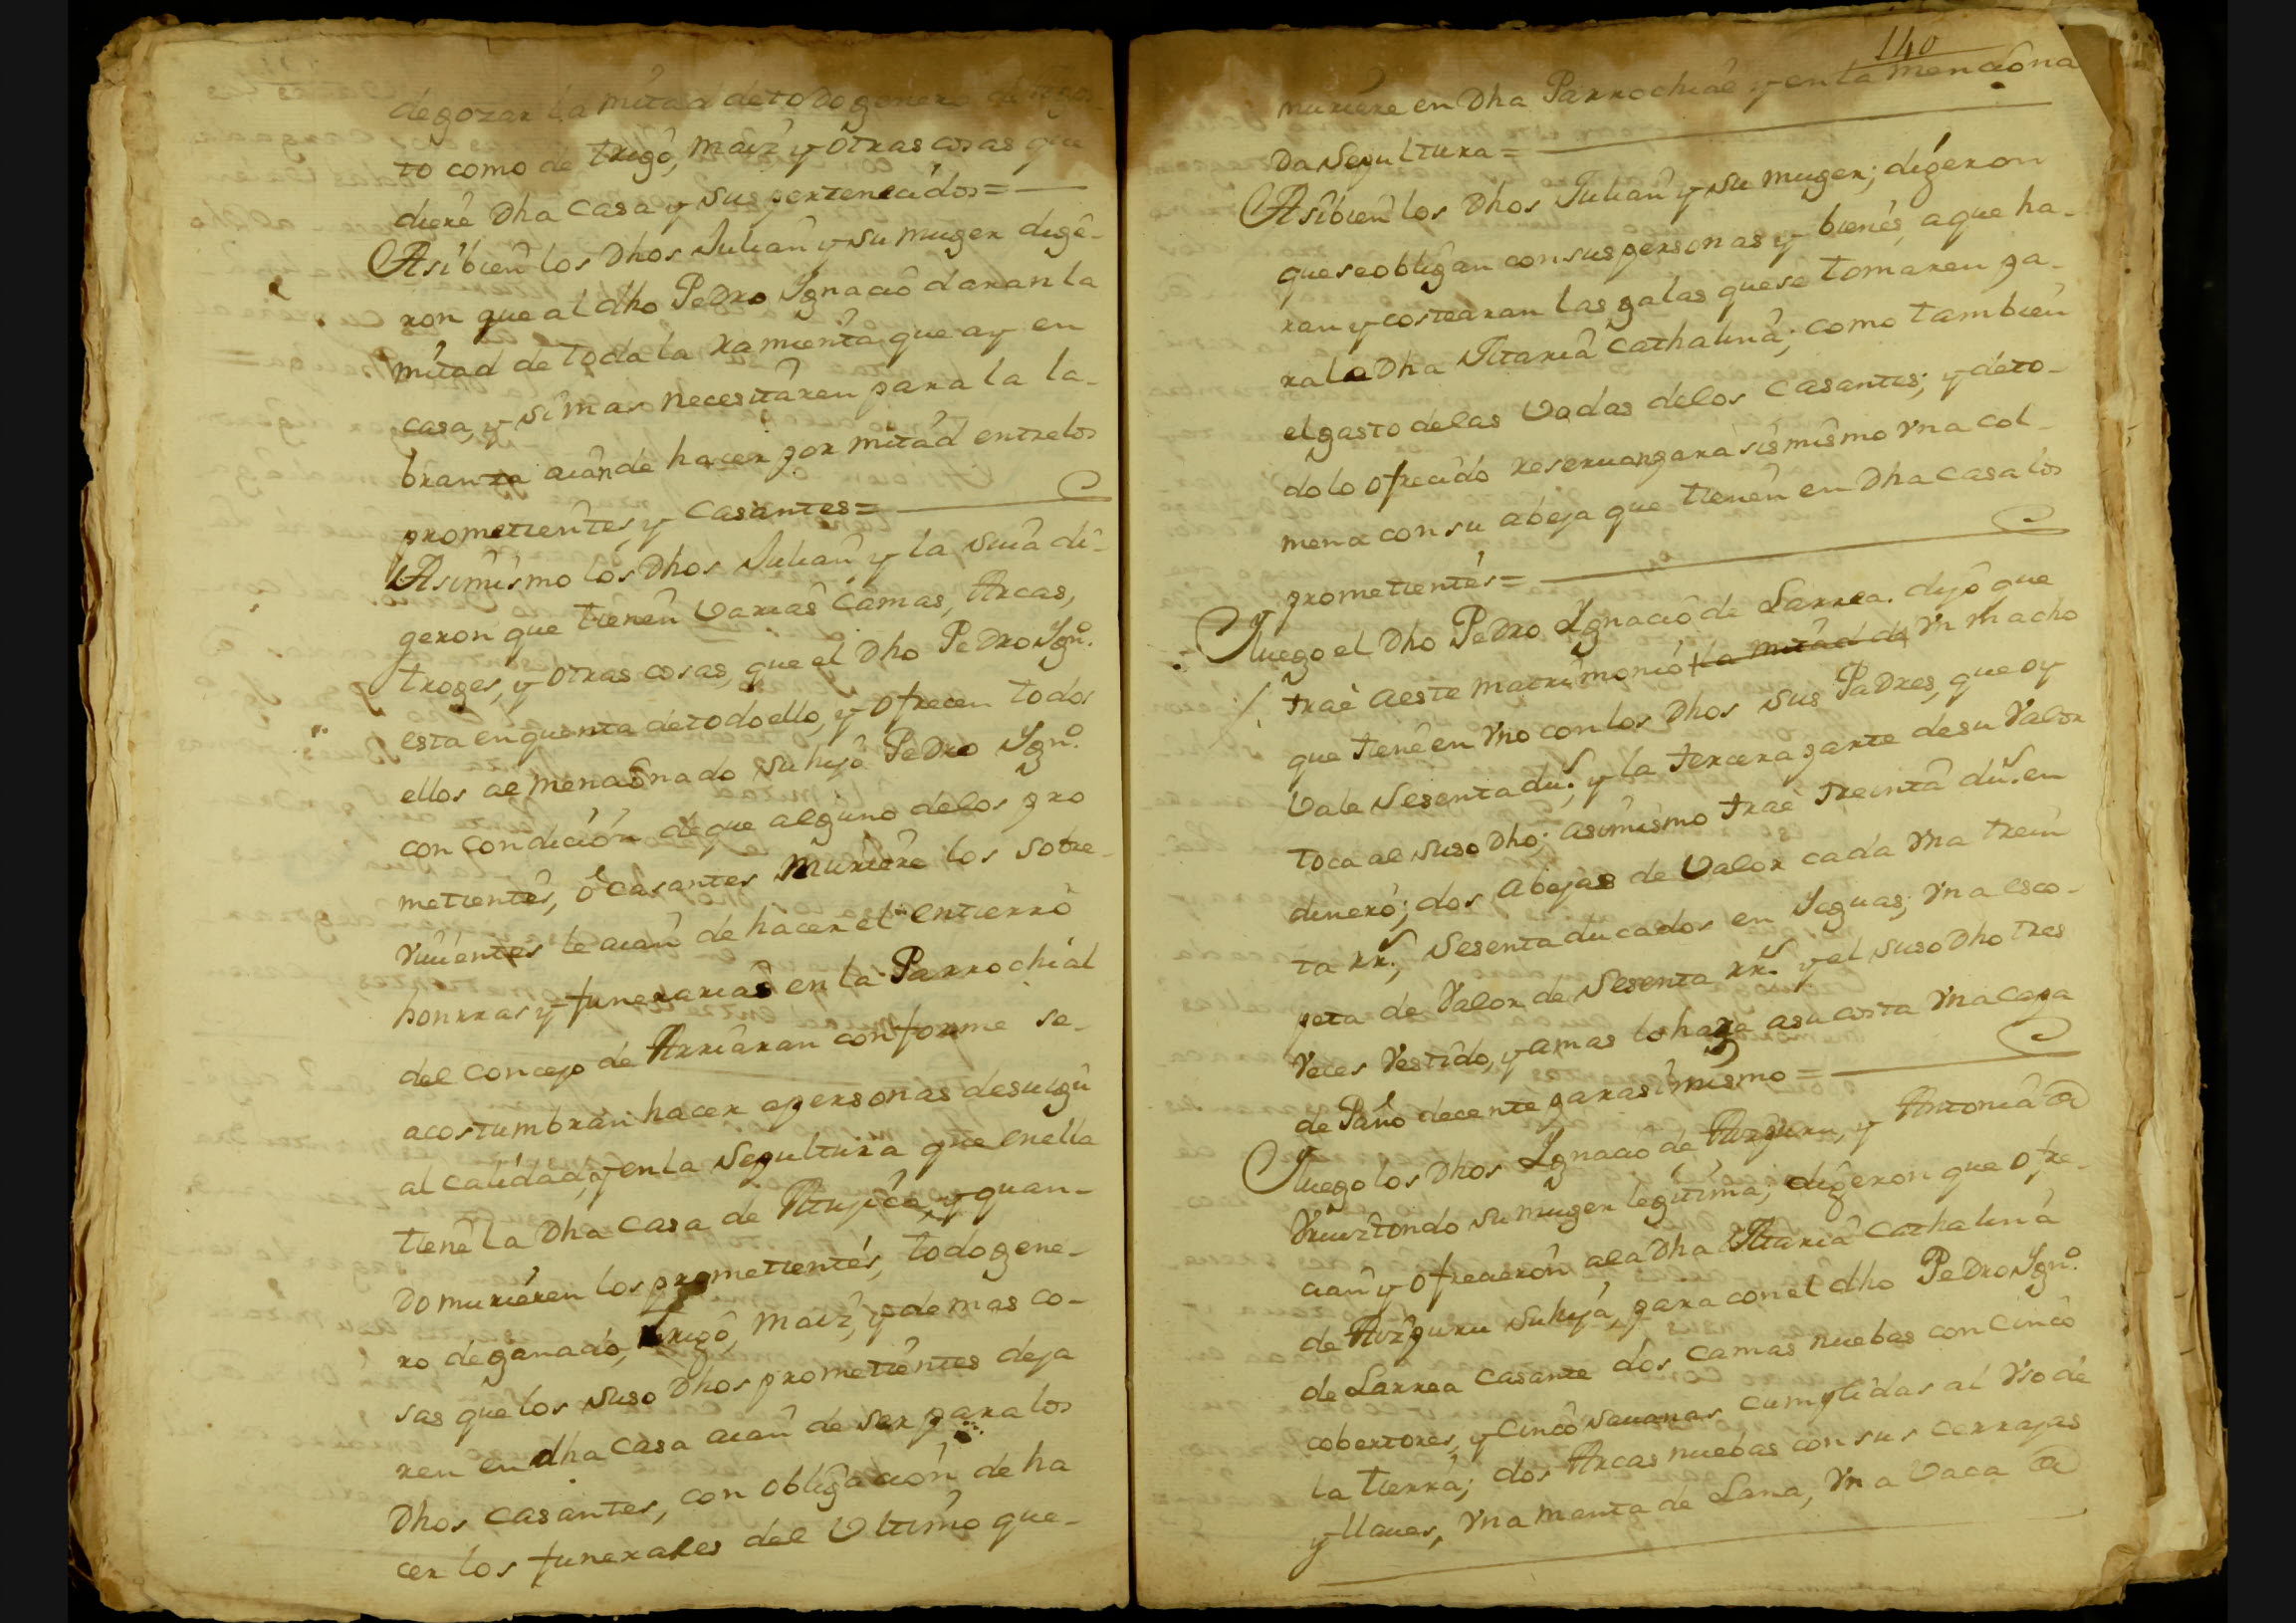 degozar la mitad detodo genero de
to como de trigo, maiz y otras cosas que
diere Dha casa y sus pertenecidos=
Asibien los Dhos Julian y su muger dige-
ron que al dho Pedro Ignacio daran la
mitad de toda la ramienta que ay en
casa, y simas necesitaren para la la-
branza aian de hacer por mitad entrelos
prometientes, y casantes=
Asimismo los Dhos Julian y la suia di-
geron que tienen varias camas, Arcas,
troges, y otras cosas, que el Dho Pedro Ygn.º
esta enquenta detodoello, y ofrecen todos
ellos al mencionado su hijo Pedro Ygn.º
con condicion deque alguno delos pro
metientes, ó casantes muriere los sobre-
viuientes le aian de hacer el entierro
honrras y funerarias en la Parrochial
del concejo de Arriaran conforme se-
acostumbran hacer apersonas desuigu
al calidad, y en la Sepultura que enella
tiene la Dha casa de Mujica, y quan-
do murieren los prometientes, todo gene-
ro deganado, trigo, maiz, y demas co-
sas quelos suso Dhos prometientes deja
ren en dha casa aian de ser para los
Dhos casantes, con obligacion de ha
cer los funerales del Ultimo que-
140
muriere en Dha Parrochial y en la menciona
da Sepultura=
Asibien los Dhos Julian y su muger; digeron
queseobligan consuspersonas y bienes, aque ha-
ran y costearan las galas quese tomaren pa-
rala Dha Maria Cathalina; como tambien
elgasto delas Vodas delos casantes; y deto-
dolo ofrecido reseruanpara sis mismo vna col-
mena con su abeja que tienen en Dha casa los
prometientes=
Iluego el Dho Pedro Ygnacio de Larrea. dijo que
trae aeste matrimonio la mitad de vn macho
que tiene en vno con los Dhos sus Padres, que oy
vale sesenta dus., y la tercera parte desu Valor
toca al suso Dho; asimismo trae treinta dus. en
dinero; dos abejas de valor cada vna trein
ta rrs., sesenta ducados en Yeguas; vna esco-
peta de Valor de sesenta rrs. y el suso Dho tres
veces vestido, y amas lo haze asu costa vna capa
de Paño decente parasimismo=
Iluego los Dhos Ygnacio de Aizpuru, y Antonia @
su muger legitima, digeron que ofre-
cian y ofrecieron ala Dha Maria Cathalina
de Aizpuru suhija, para con el dho Pedro Ygn.º
de Larrea casante dos camas nuebas con cinco
cobertores, y cinco sauanas cumplidas al vso de
la tierra; dos Arcas nuebas con sus cerrajas
y llaues, vna manta de Lana, vna Vaca @